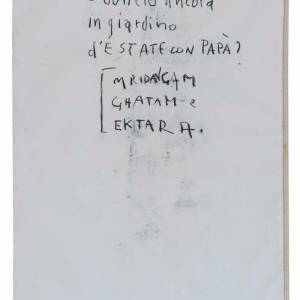 ancora
in giardino
d'ESTATE CON PAPÀ?
MRIDANGAM
GHATAM e
EKTARA.